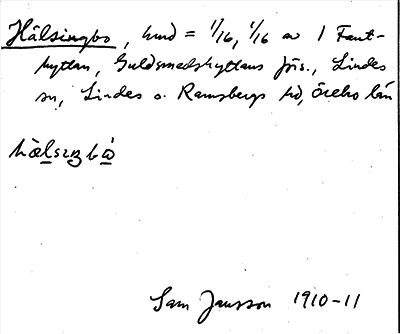 Hälsingbo, hmd = 1/16, 1/16 av 1 Fant-
hyttan, Guldsmedshyttans förs., Lindes
sn, Lindes o. Ramsbergs hd, Örebro län
Sam Jansson 1910-11